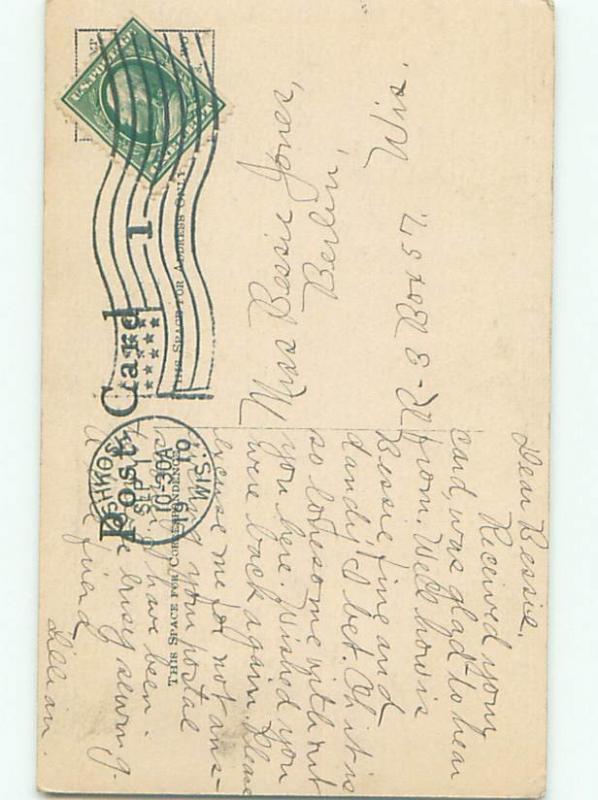 Post Card
THIS SPACE FOR CORRESPONDENCE
THIS SPACE FOR ADDRESS ONLY
U.S. POSTAGE
1
OSHKOSH
SEP 19
10-30A
1910
WIS.
Dear Bessie.
Received your
card, was glad to hear
from. Well how is
Bessie, fine and
dandy I bet. Oh it is
so lonesome without
you here. Wished you
were back again. Please
excuse me for not ans-
your postal
I have been
busy sewing.
A friend
Lillian.
Miss Bessie Jones,
Berlin,
R-3 Box 57
Wis.